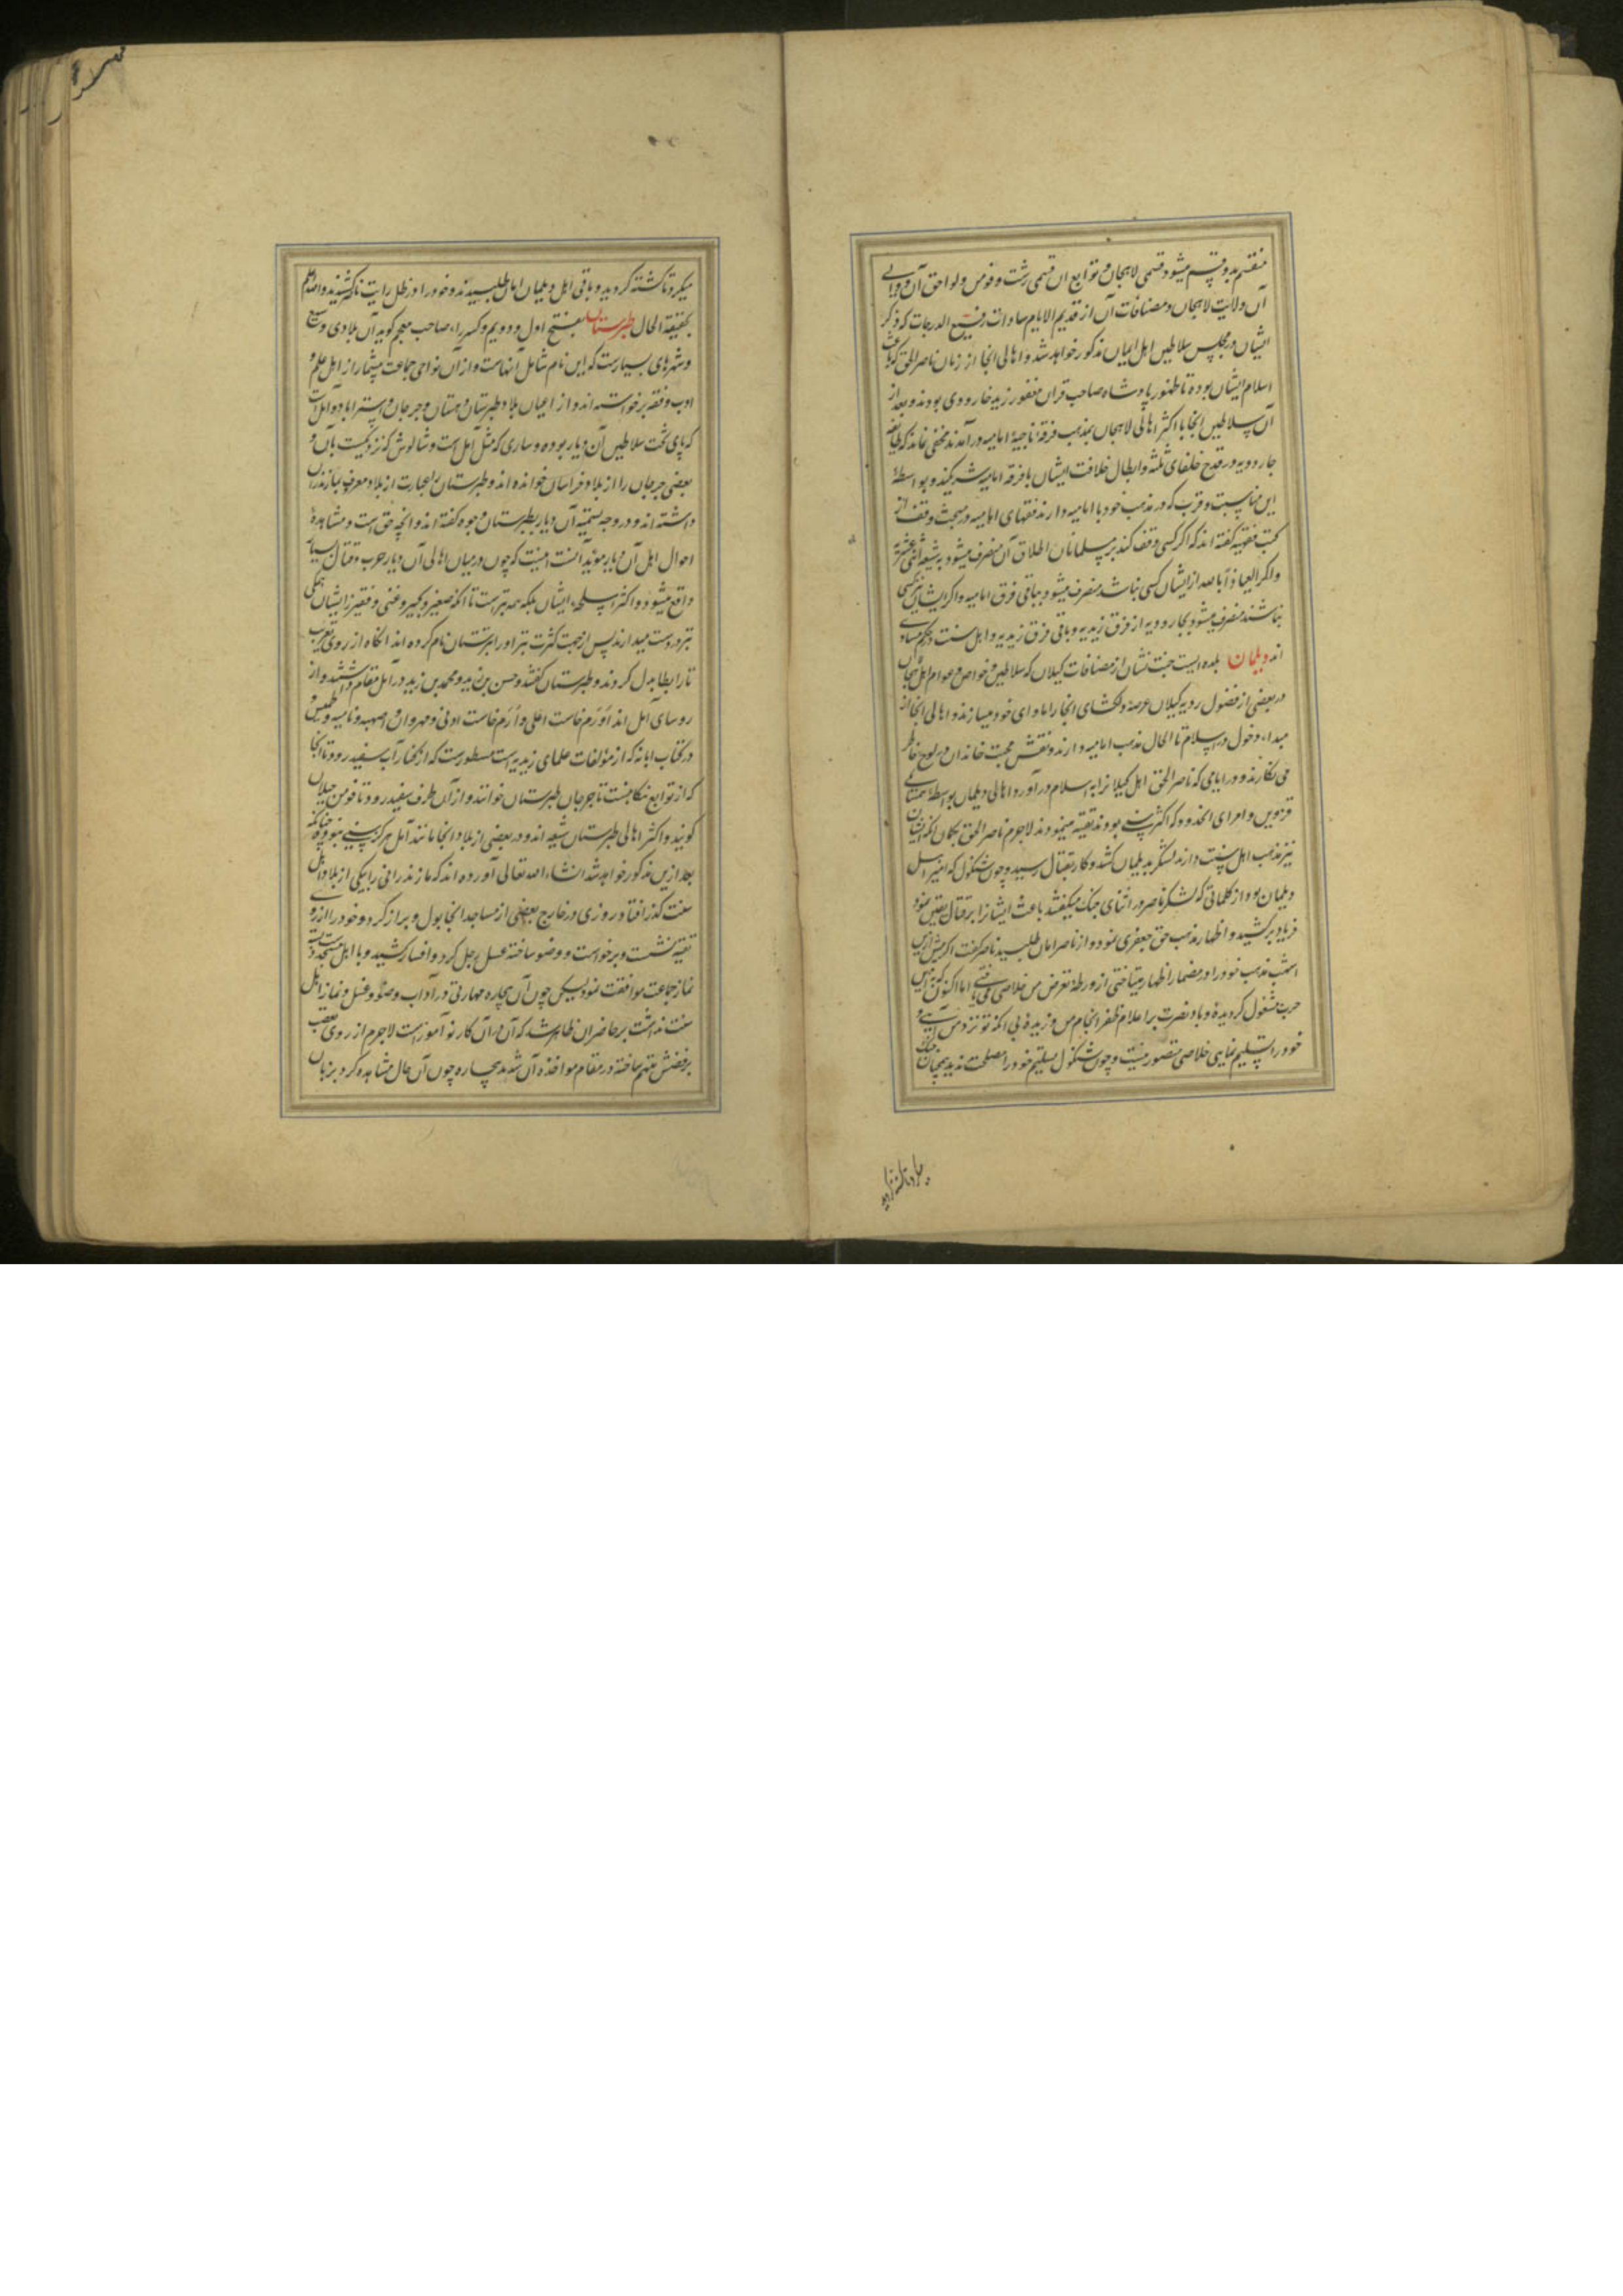 منقسم بدو قسم میشود قسمی لاهجان و توابع ان و قسمی رشت و فومن و لواحق آن و والی
آن ولایت لاهجان و مضافات آن از قدیم الایام سادات رفیع الدرجات که ذکر
ایشان در مجلس سلاطین اهل ایمان مذکور خواهد شد و اهالی انجا از زمان ناصر الحق که باعث
اسلام ایشان بوده تا ظهور پادشاه صاحب قران مغفور زیدی جارودی بودند و بعد از
آن سلاطین انجا با اکثر اهالی لاهجان بمذهب فرقهٔ ناجیهٔ امامیه درآمدند مخفی نماند که طایفه
جارودیه در قدح خلفای ثلثه و ابطال خلافت ایشان با فرقه امامیه شریکند و بواسطهٔ
این مناسبت و قرب که در مذهب خود با امامیه دارند فقهای امامیه در مبحث وقف از
کتب فقهیه گفته اند که اگر کسی وقف کند بر مسلمانان اطلاق آن منصرف میشود به شیعه اثنی عشریه
و اگر العیاذ بالله از ایشان کسی نباشد منصرف میشود بباقی فرق امامیه و اگر ایشان نیز کسی
نباشند منصرف میشود بجارودیه از فرق زیدیه و باقی فرق زیدیه و اهل سنت در حکم مساوی
اند دیلمان بلده ایست جنت نشان از مضافات کیلان که سلاطین و خواص و عوام اهل لاهجان
در بعضی از فصول رو به کیلان عرصهٔ دلکشای انجا را ماوای خود میسازند و اهالی انجا از
مبداء دخول در اسلام تا الحال مذهب امامیه دارند و نقش محبت خاندان در لوح خاطر
می نکارند و در ایامی که ناصر الحق اهل کیلانرا به اسلام درآورد اهالی دیلمان بواسطهٔ همسایگی
قزوین و امرای انحدود که اکثر سنی بودند تقیه مینمودند لاجرم ناصر الحق بکمان انکه ایشان
نیز مذهب اهل سنت دارند لشکر بدیلمان کشد و کار بقتال رسید و چون شنکول که امیر اهل
دیلمان بود از کلماتی که لشکر ناصر در اثنای جنک میگفتند باعث ایشانرا بر قتال یقین نمود
فریاد برکشید و اظهار مذهب حق جعفری نمود و از ناصر امان طلبید ناصر گفت اگر پیش ازین
اسم مذهب خود را در مضمار اظهار میتاختی از ورطهٔ تعرض من خلاصی می یافتی اما اکنون که باین
حرب مشغول کردیدهٔ و باد نصرت بر اعلام ظفر انجام من وزیده بی انکه تو نزد من آئی و
خود را تسلیم نمایی خلاصی متصور نیست و چون شنکول تسلیم خود را مصلحت ندید همچنان جنک
میکرد تا کشته کردید
میکرد تا کشته کردید و باقی اهل دیلمان امان طلبیدند و خود را در ظل رایت ناصر کشیدند والله اعلم
بحقیقة الحال طبرستان بفتح اول و دویم و کسر راء صاحب معجم کوید آن بلادی وسیع
و شهرهای بسیارست که این نام شامل آنهاست و از آن نواحی جماعت بیشمار از اهل علم و
ادب و فقه برخواسته اند و از اعیان بلاد طبرستان دهستان و جرجان و استراباد و آمل است
که پای تخت سلاطین آن دیار بوده و ساری که مثل آمل است و شالوش که نزدیکست بآن و
بعضی جرجان را از بلاد خراسان خوانده اند و طبرستان را عبارت از بلاد معروف بمازندران
داشته اند و در وجه تسمیه آن دیار بطبرستان وجوه گفته اند و انچه حق است و مشاهدهٔ
احوال اهل آن دیار مؤید آنست اینست که چون در میان اهالی آن دیار حرب و قتال بسیار
واقع میشود و اکثر اسلحهٔ ایشان بلکه همه تبرست تا انکه صغیر و کبیر و غنی و فقیر از ایشان همگی
تبر در دست میدارند پس از جهت کثرت تبر او را تبرستان نام کرده اند انگاه از روی تعریب
تا را بطا بدل کردند و طبرستان گفتند و حسن بن زید و محمد بن زید در آمل مقام داشتند و از
روسای آمل اند اورم خاست اعلی و اورم خاست ادنی و مهروان و اصبهبد و نامیه و طمیش
در کتاب ابانه که از مؤلفات علمای زیدیه است مسطورست که از کنار آب سفیدرود تا انجا
که از توابع تنکابنست تا جرجان طبرستان خوانند و از آن طرف سفیدرود تا فومن جیلان
کویند و اکثر اهالی طبرستان شیعه اند و در بعضی از بلاد انجا مانند آمل هرگز سنی نبوده چنانکه
بعد ازین مذکور خواهد شد انشاء الله تعالی آورده اند که مازندرانی را بیکی از بلاد اهل
سنت گذر افتاد روزی در خارج بعضی از مساجد انجا بول و براز کرد و خود را از روی
تقیه نشست و برخواست و وضو ساخته غسل رجل کرد و افسار کشید و با اهل مسجد دست بسته
نماز جماعت موافقت نمود لیکن چون آن بیچاره مهارتی در آداب وضو و غسل و نماز اهل
سنت نداشت بر حاضران ظاهر شد که آن در آن کار نو آموزست لاجرم از روی تعصب
برفضش متهم ساخته در مقام مواخذه آن شدند بیچاره چون آن حال مشاهده کرد بزبان